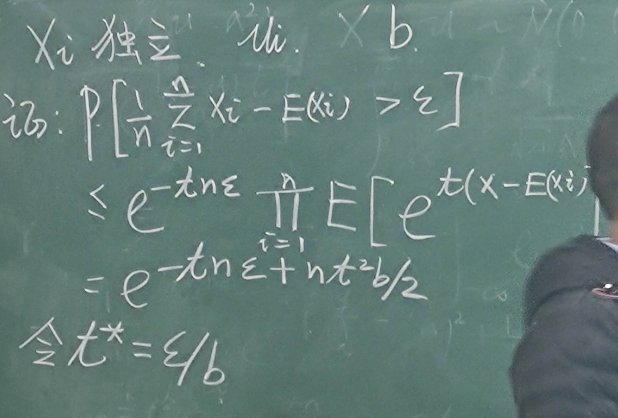 Xi 独立. μi. X b.
证: P[1/n Σ_{i=1}^{n} Xi - E(Xi) > ε]
≤ e^{-tnε} Π_{i=1}^{n} E[e^{t(X-E(Xi)}
= e^{-tnε+nt²b/2}
令 t* = ε/b